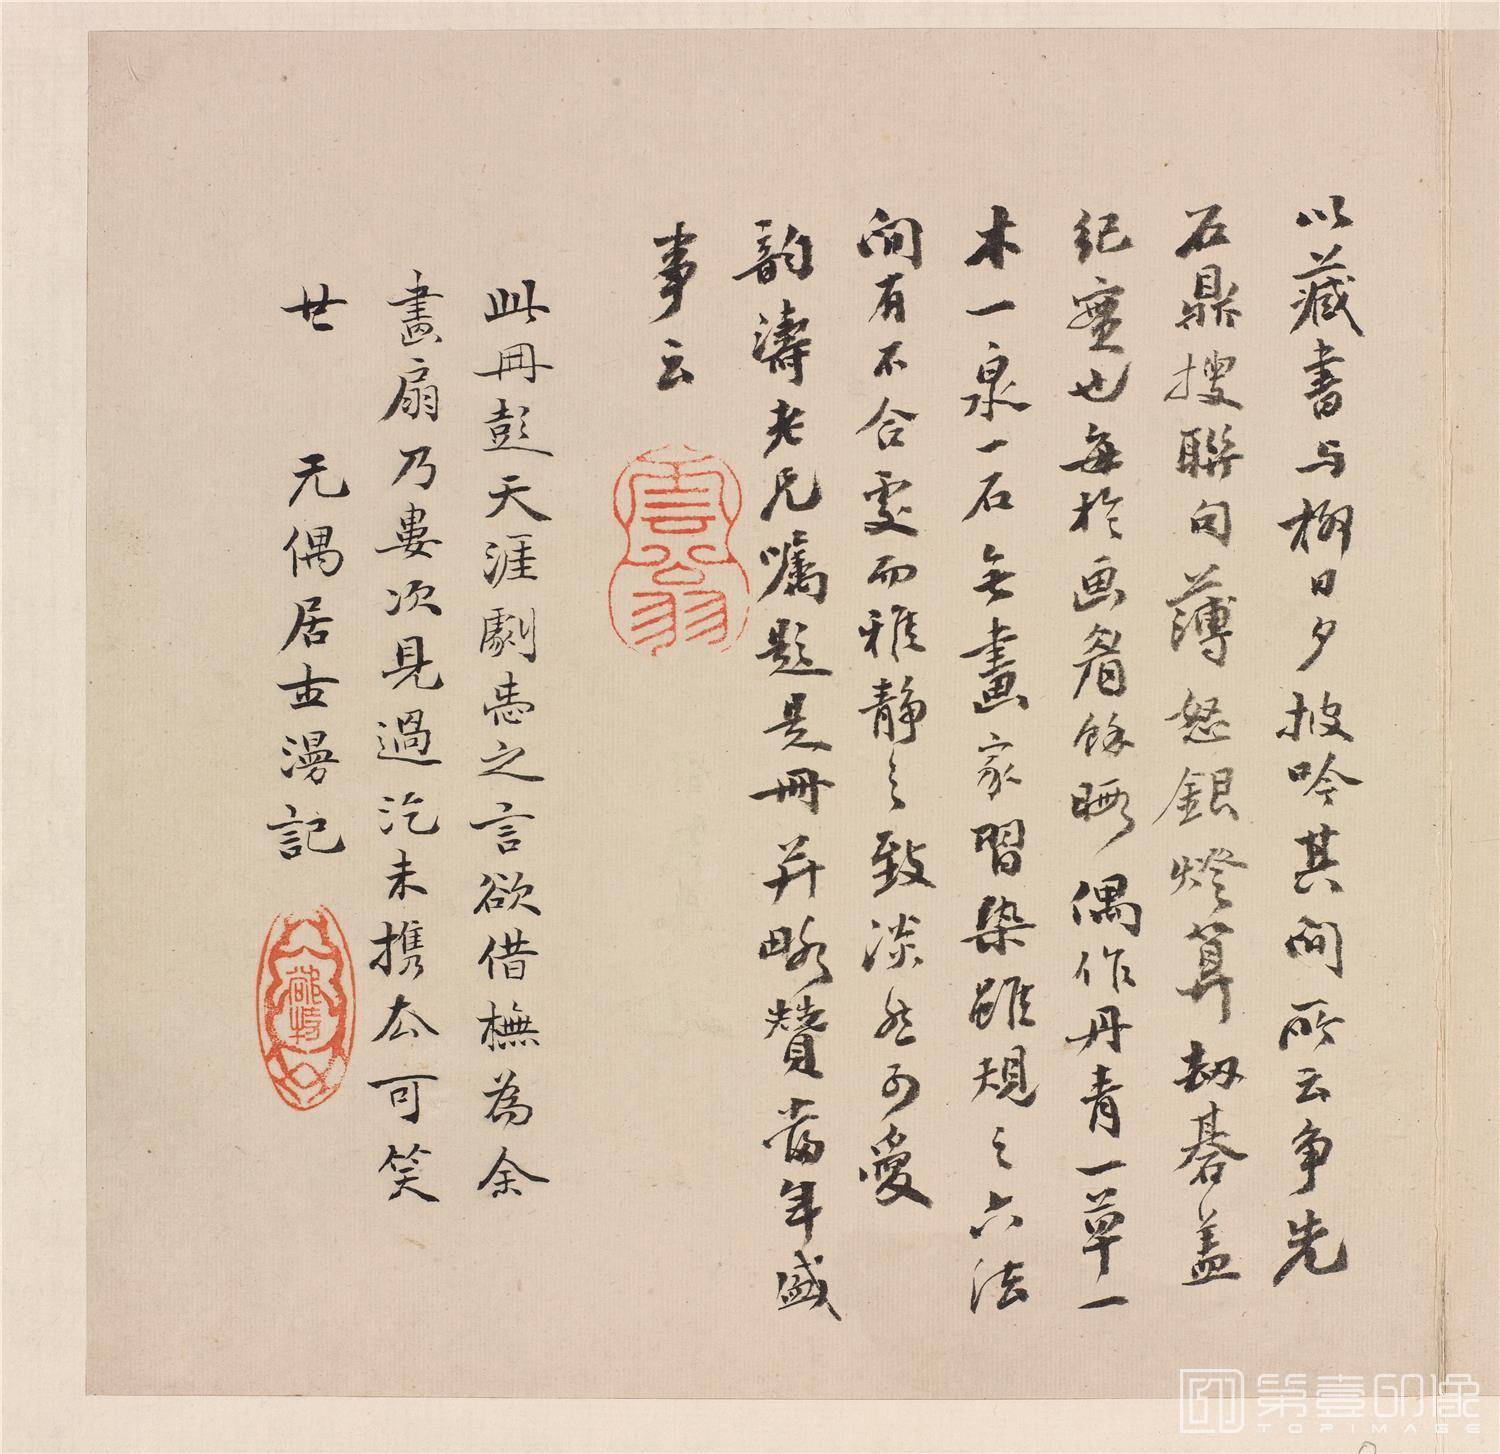 以藏書与柳日夕披吟其间所云争先
石鼎搜聯句薄怒銀燈算劫碁盖
纪實也每於画眉餘暇偶作丹青一草一
木一泉一石無畫家習染雖規之六法
间有不合處而雅静之致淡然可愛
韵濤老兄嘱題是冊并略贊當年盛
事云
雲翁
此冊彭天涯劇恚之言欲借橅為余
畫扇乃婁次見過汔未携去可笑
廿 无偶居士漫記
第壹印像
TOPIMAGE